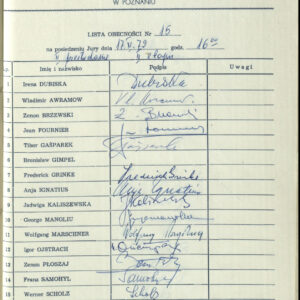 W POZNANIU
LISTA OBECNOŚCI Nr 15
na posiedzeniu Jury dnia 17.V.79 godz. 16 00
Lp. Imię i nazwisko Podpis Uwagi
1 Irena DUBISKA Dubiska
2 Wladimir AWRAMOW
3 Zenon BRZEWSKI Z. Brzewski
4 Jean FOURNIER
5 Tibor GAŠPAREK Gašparek
6 Bronisław GIMPEL
7 Frederick GRINKE Frederick Grinke
8 Anja IGNATIUS Anja Ignatius
9 Jadwiga KALISZEWSKA Kaliszewska
10 George MANOLIU
11 Wolfgang MARSCHNER Wolfgang Marschner
12 Igor OJSTRACH
13 Zenon PŁOSZAJ
14 Franz SAMOHYL Samohyl
15 Werner SCHOLZ Scholz